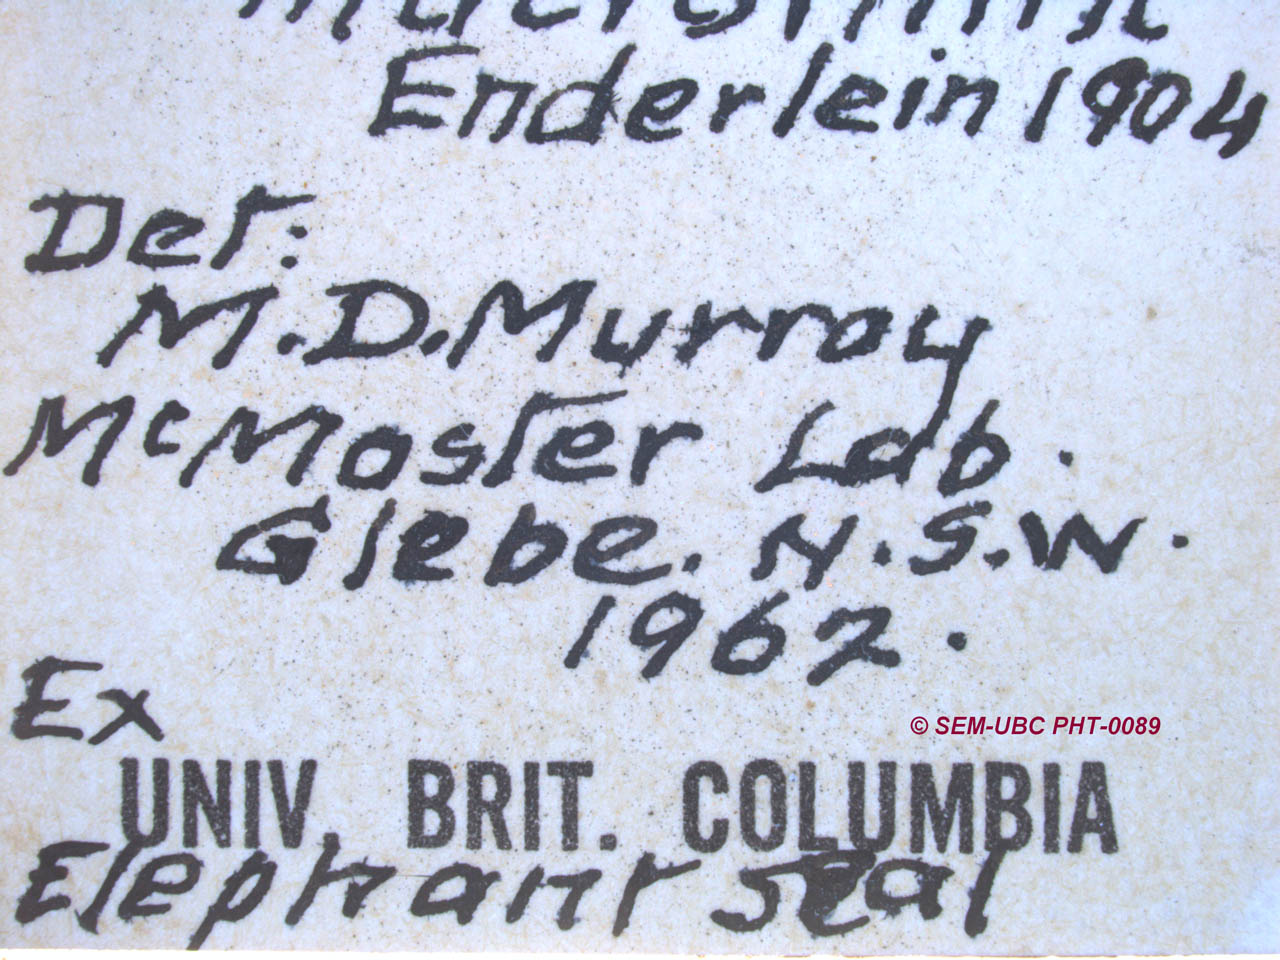 Enderlein 1904
Det:
M.D. Murray
McMaster Lab.
Glebe. N.S.W.
1962.
Ex
© SEM-UBC PHT-0089
UNIV. BRIT. COLUMBIA
Elephant seal